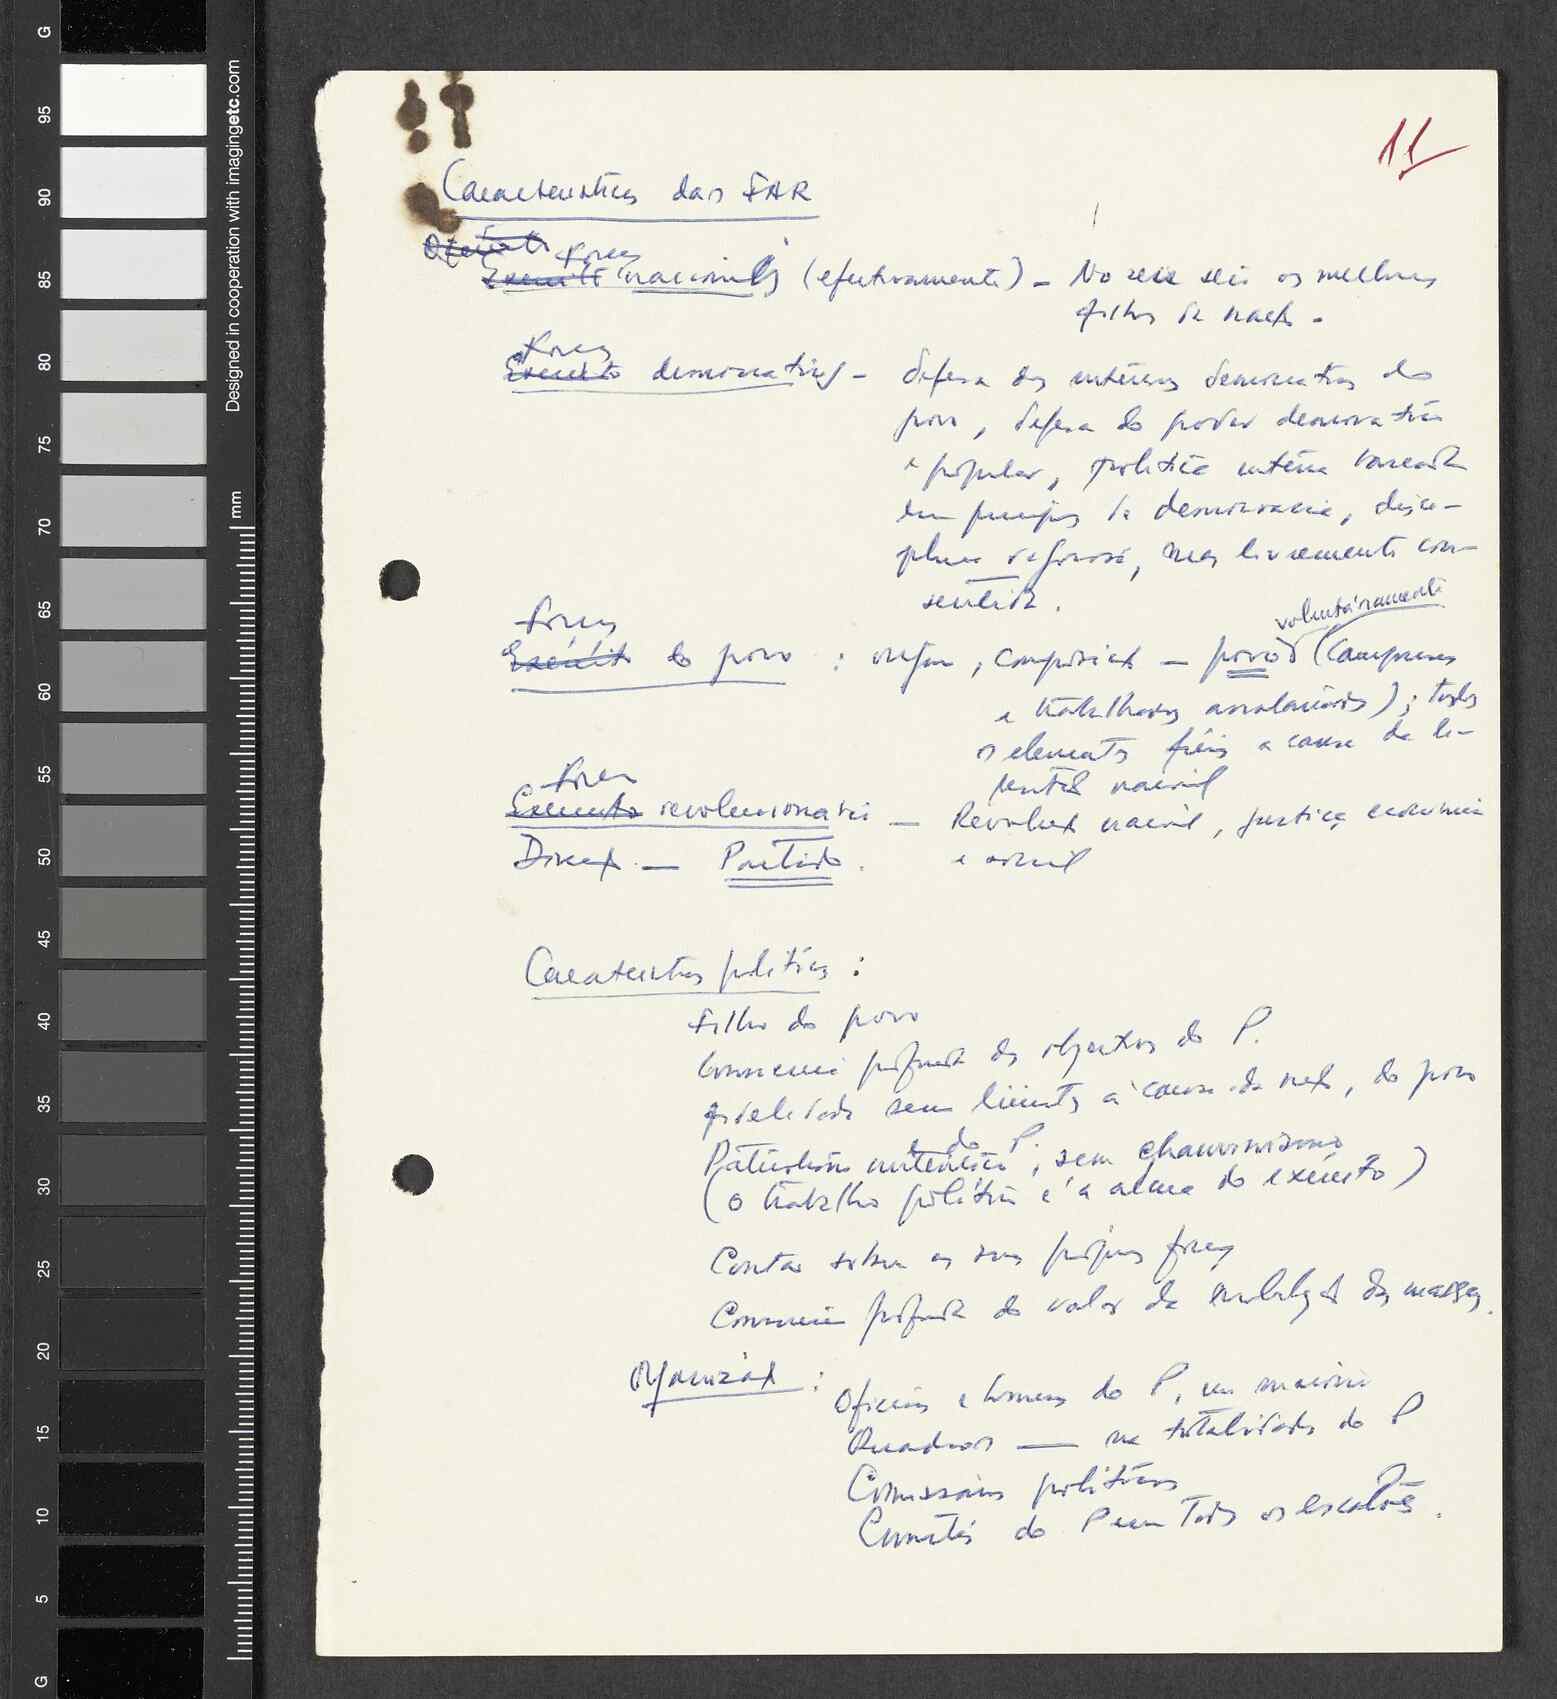 11
Características das FAR
Forças
Exército nacionais (efectivamente) – No seu seio os melhores
filhos da nação.
Forças
Exército democráticas – defesa dos interesses democráticos do
povo, defesa do poder democrático
e popular, política interna baseada
em princípios de democracia, disci-
plina rigorosa, mas livremente con-
sentida.
Forças
voluntáriamente
Exército do povo : origem, composição – povo (camponeses
e trabalhadores assalariados); todos
os elementos fiéis a causa da li-
bertação nacional
Forças
Exército revolucionário – Revolução nacional, justiça económica
e social
Direcção – Partido.
Características políticas :
Filho do povo
Consciência profunda dos objectivos do P.
fidelidade sem limites à causa da nação, do povo
e do P.
Patriotismo autêntico, sem chauvinismo
(o trabalho político é a alma do exército)
Contar sobre as suas próprias forças
Consciência profunda do valor da mobilização das massas.
Organização :
Oficiais e homens do P. em maioria
Quadros — na totalidade do P
Comissários políticos
Comités do P em todos os escalões.
G
95
90
85
80
75
70
65
60
55
50
45
40
35
30
25
20
15
10
5
G
mm
Designed in cooperation with imagingetc.com